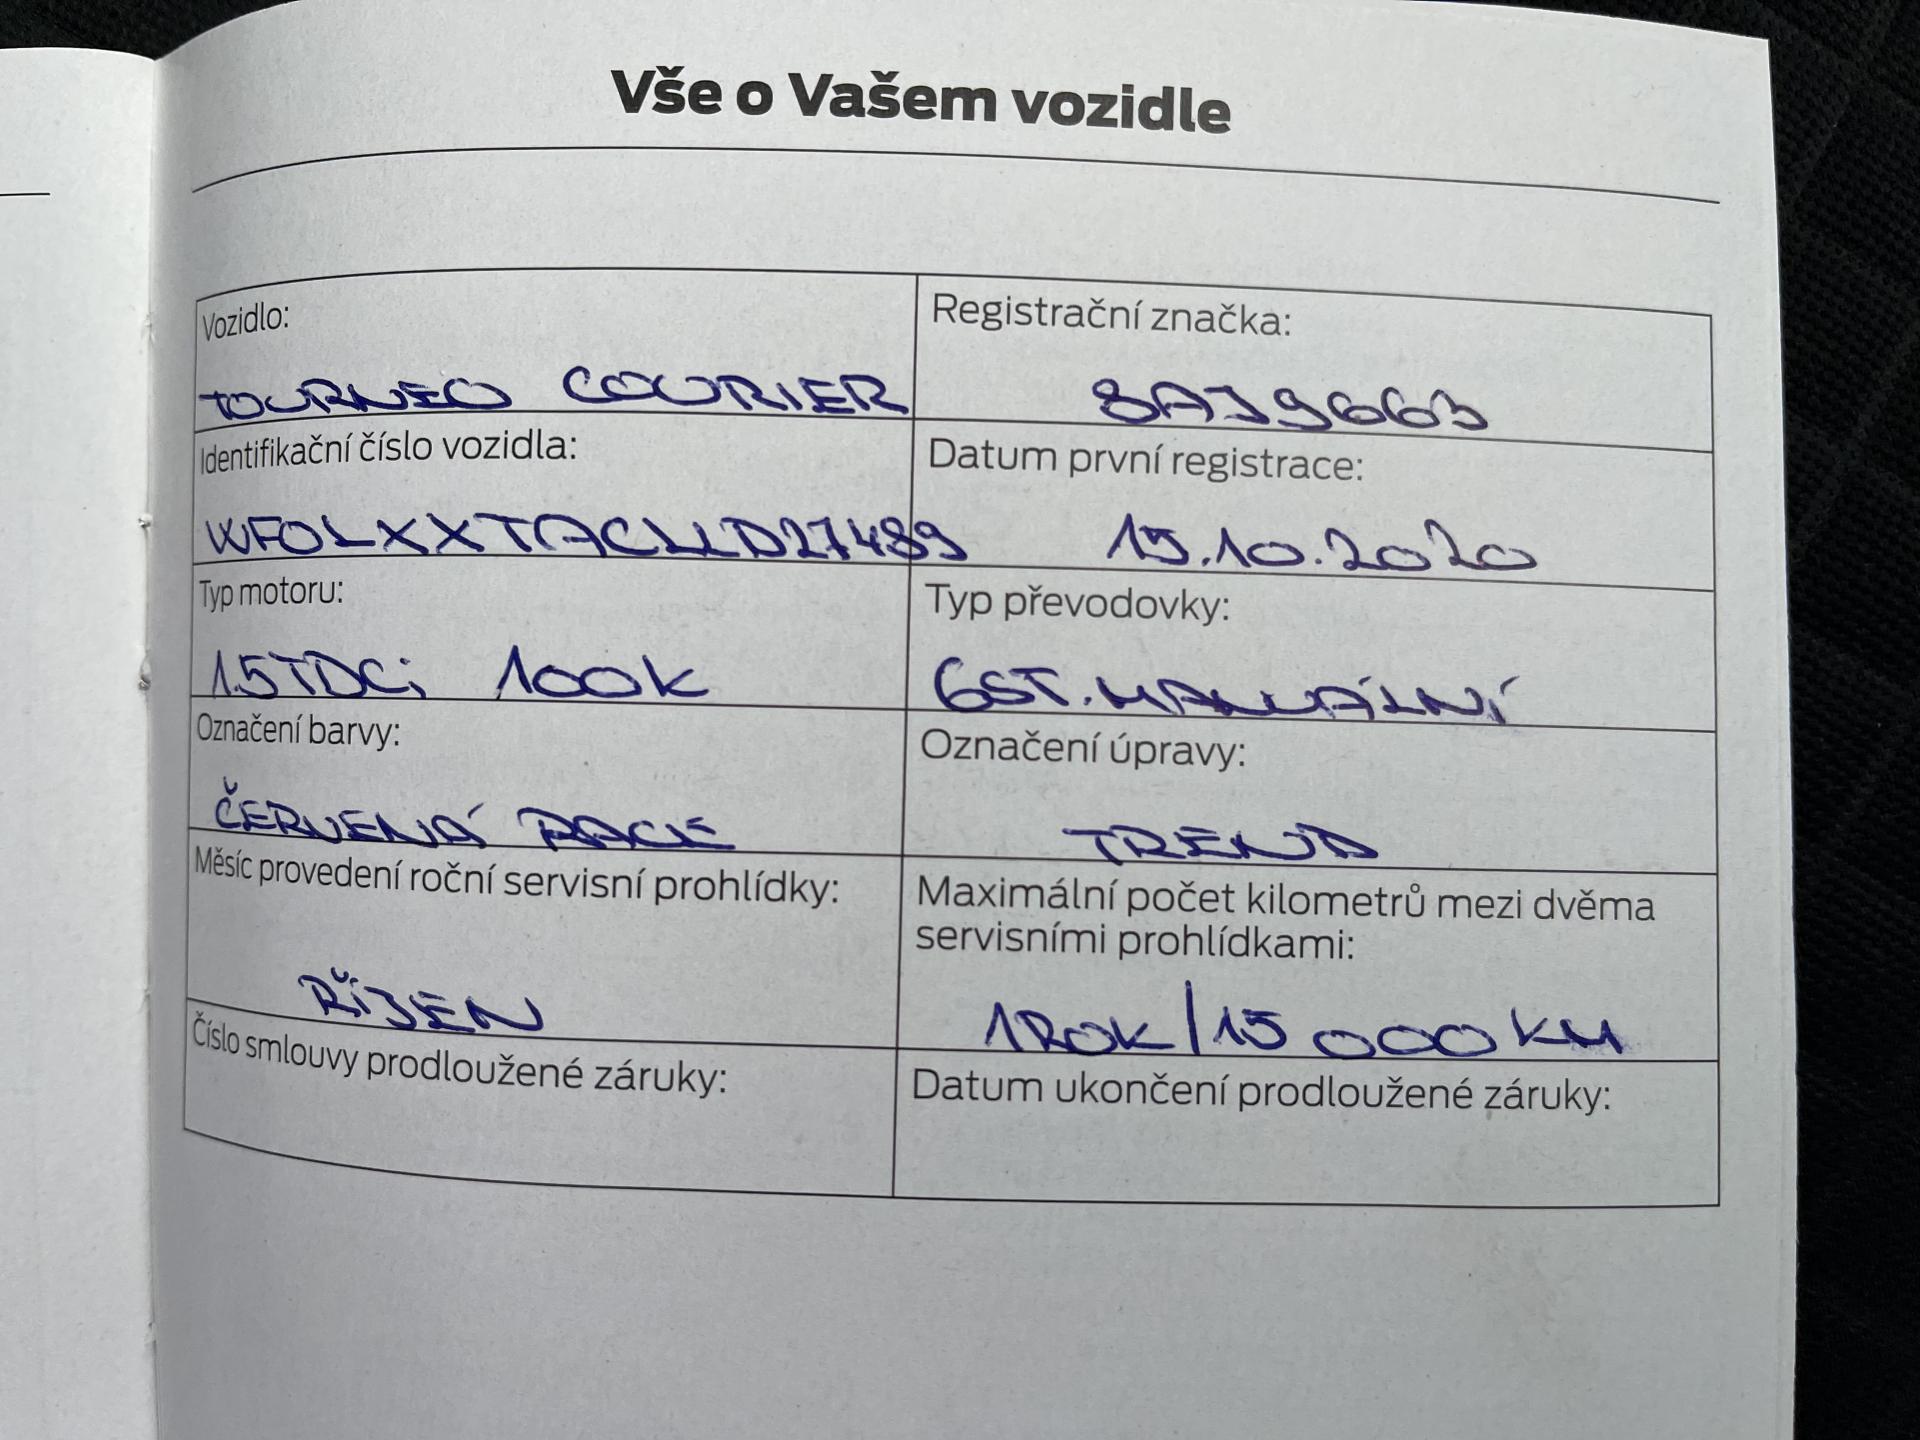 Vše o Vašem vozidle
Vozidlo:
TOURNEO COURIER
Registrační značka:
8AJ9663
Identifikační číslo vozidla:
WF0LXXTACLLD27489
Datum první registrace:
15.10.2020
Typ motoru:
1.5TDCi 100k
Typ převodovky:
6ST. MANUÁLNÍ
Označení barvy:
ČERVENÁ RACE
Označení úpravy:
TREND
Měsíc provedení roční servisní prohlídky:
ŘÍJEN
Maximální počet kilometrů mezi dvěma
servisními prohlídkami:
1ROK/15 000KM
Číslo smlouvy prodloužené záruky:
Datum ukončení prodloužené záruky: